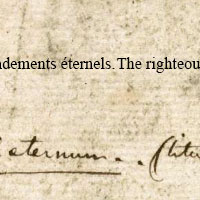 dements éternels. The righteou
aternum. (lite